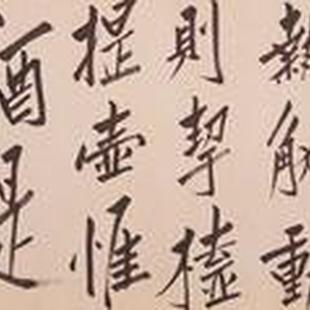 執觚動
則挈榼
提壺惟
酒是